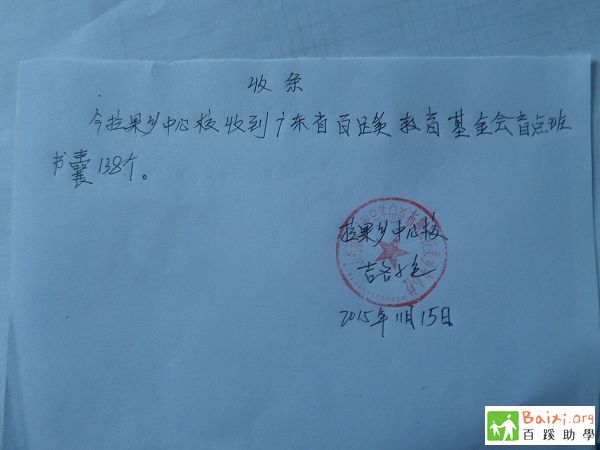 收条
今拉果乡中心校收到广东省百蹊教育基金会首点班
书囊138个。
拉果乡中心校
吉各小色
2015年11月15日
Baixi.org
百蹊助學